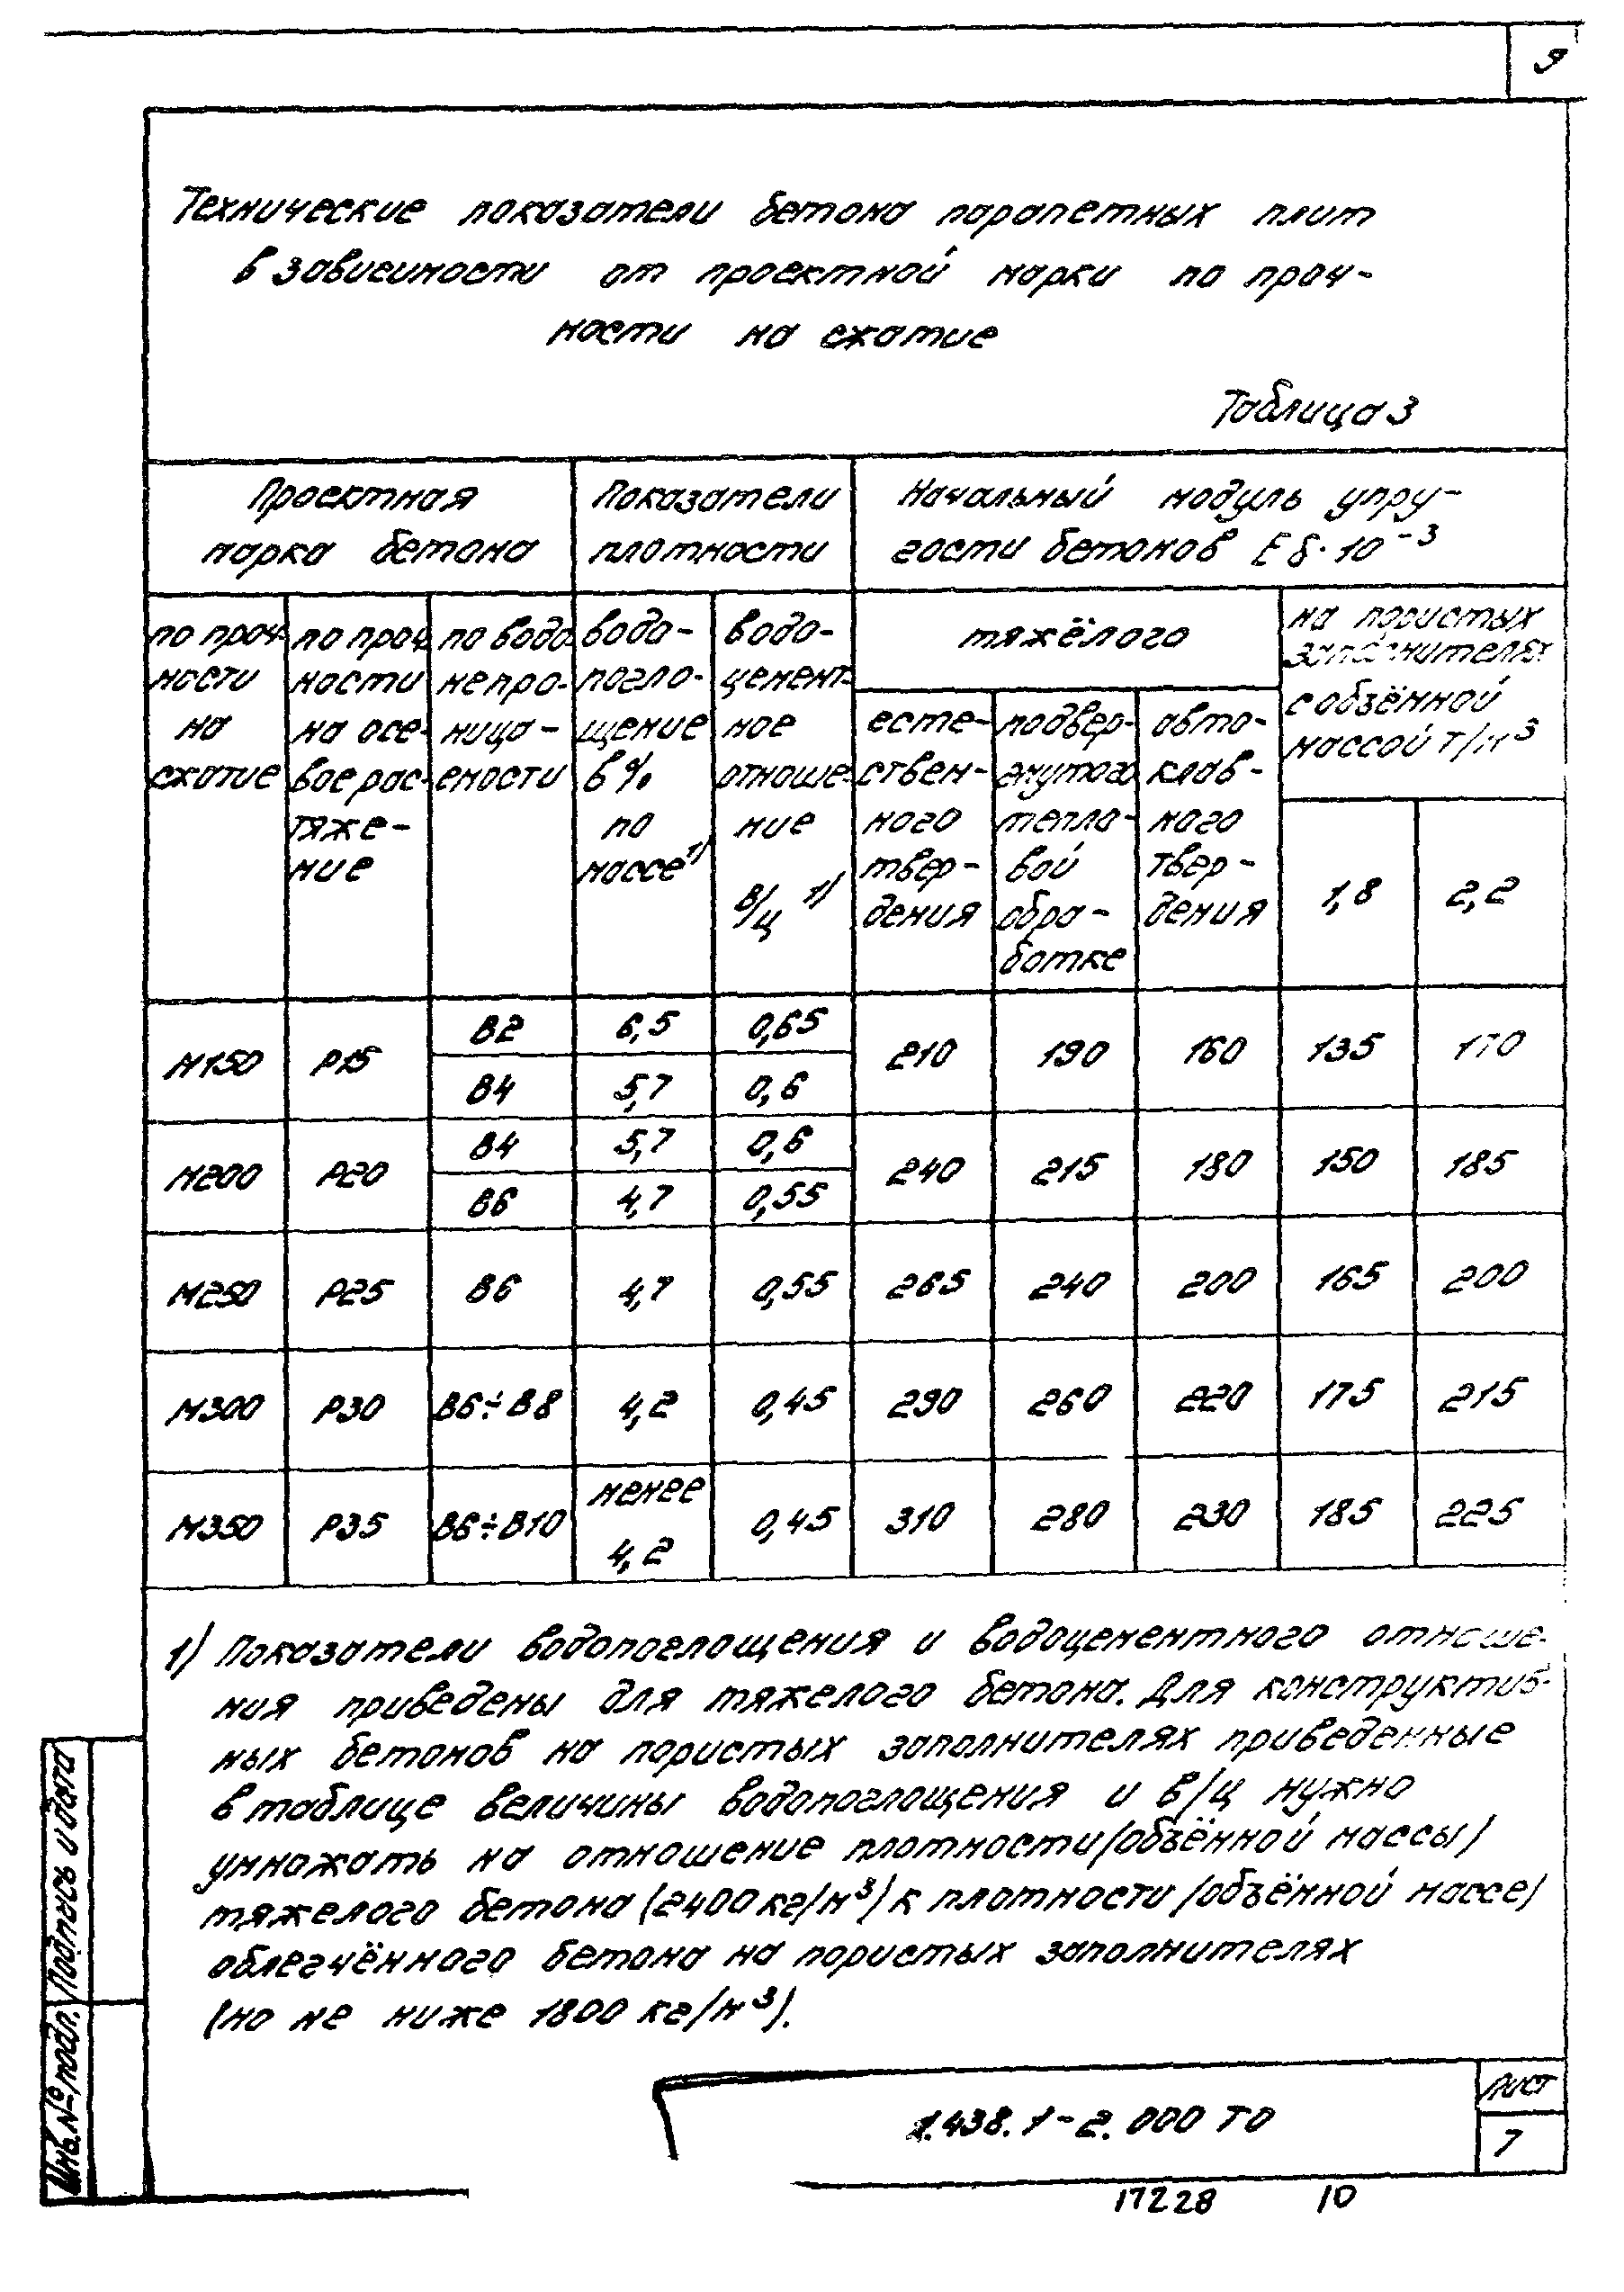 9
Технические показатели бетона парапетных плит
в зависимости от проектной марки по проч-
ности на сжатие
Таблица 3
Проектная
марка бетона
Показатели
плотности
Начальный модуль упру-
гости бетонов Еб·10⁻³
по проч-
ности
на
сжатие
по проч-
ности
на осе-
вое рас-
тяже-
ние
по водо-
непро-
ница-
емости
водо-
погло-
щение
в %
по
массе¹⁾
водо-
цемент-
ное
отноше-
ние
В/Ц ¹⁾
тяжёлого
есте-
ствен-
ного
твер-
дения
подвер-
гнутого
тепло-
вой
обра-
ботке
авто-
клав-
ного
твер-
дения
на пористых
заполнителях
с объёмной
массой т/м³
1,8
2,2
М150 Р15 В2 6,5 0,65 210 190 160 135 170
В4 5,7 0,6
М200 Р20 В4 5,7 0,6 240 215 180 150 185
В6 4,7 0,55
М250 Р25 В6 4,7 0,55 265 240 200 165 200
М300 Р30 В6÷В8 4,2 0,45 290 260 220 175 215
М350 Р35 В6÷В10 менее 4,2 0,45 310 280 230 185 225
1) Показатели водопоглощения и водоцементного отноше-
ния приведены для тяжелого бетона. Для конструктив-
ных бетонов на пористых заполнителях приведенные
в таблице величины водопоглощения и в/ц нужно
умножать на отношение плотности /объёмной массы/
тяжелого бетона (2400 кг/м³) к плотности /объёмной массе/
облегчённого бетона на пористых заполнителях
(но не ниже 1800 кг/м³).
Инв.№ подл.
Подпись и дата
1.438.1-2.000 ТО
Лист
7
17228 10